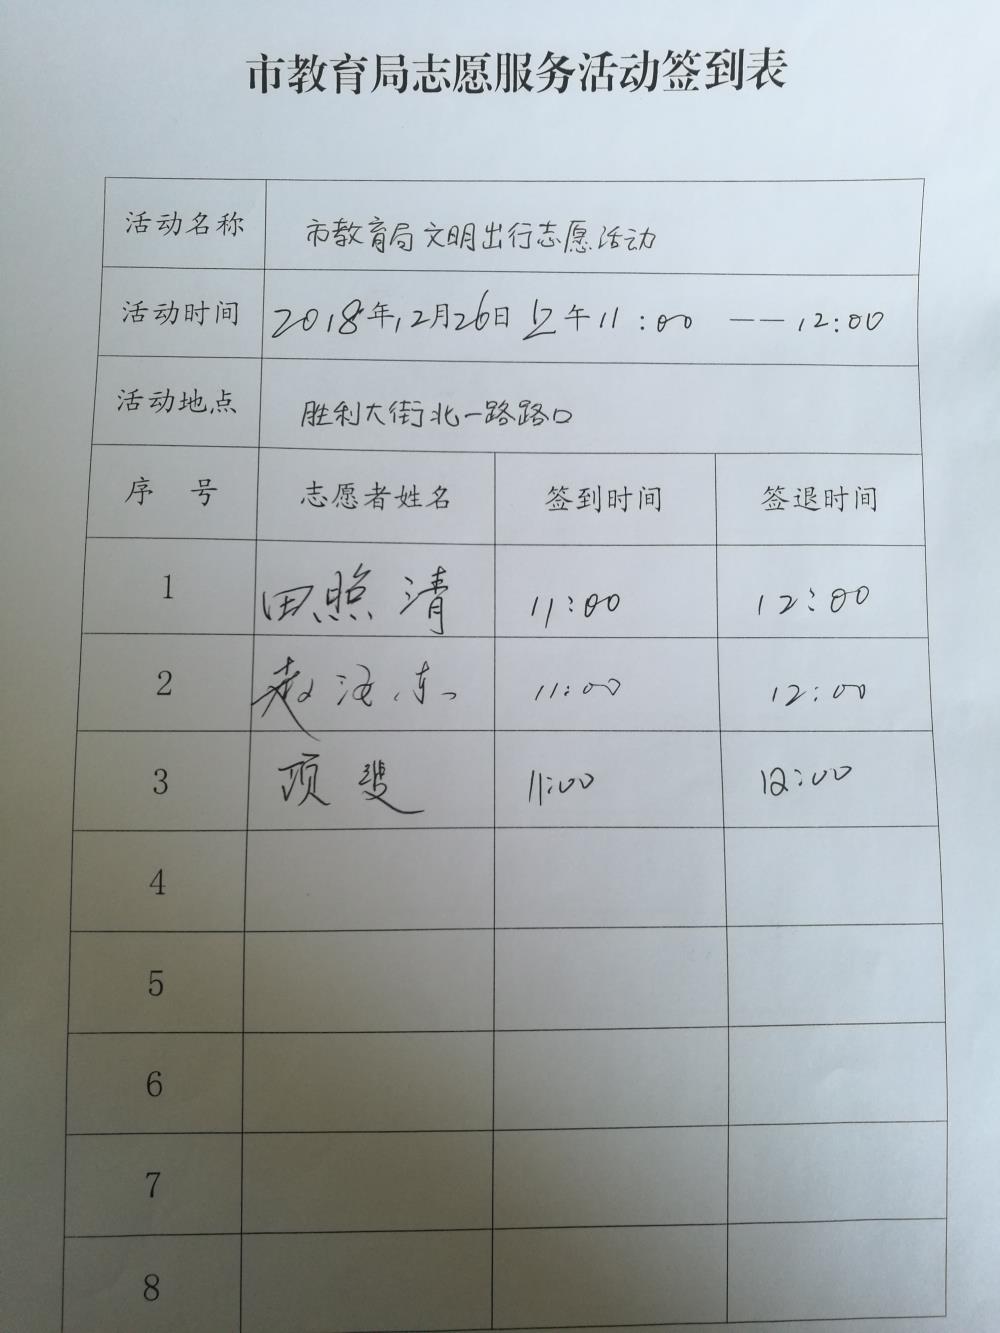 市教育局志愿服务活动签到表
活动名称 市教育局文明出行志愿活动
活动时间 2018年12月26日上午11:00 ——12:00
活动地点 胜利大街北一路路口
序 号 志愿者姓名 签到时间 签退时间
1 田照清 11:00 12:00
2 赵 东 11:00 12:00
3 项斐 11:00 12:00
4
5
6
7
8